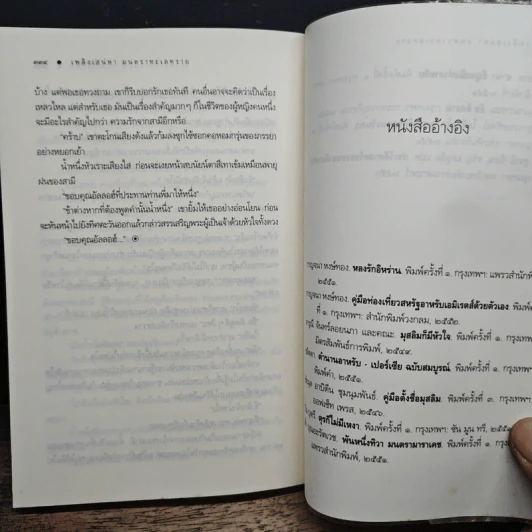 ๓๓๔ • เพลิงเสน่หา มนตราทะเลทราย
บ้าง แต่พอเธอทวงถาม เขาก็รีบบอกรักเธอทันที คนอื่นอาจจะคิดว่าเป็นเรื่อง
เหลวไหล แต่สำหรับเธอ มันเป็นเรื่องสำคัญมากๆ ก็ในชีวิตของผู้หญิงคนหนึ่ง
จะมีอะไรสำคัญไปกว่า ความรักจากสามีอีกหรือ
“คร้าบ” เขาตะโกนเสียงดังแล้วก้มลงซุกไซ้ซอกคอหอมกรุ่นของภรรยา
อย่างหยอกเย้า
น้ำหนึ่งหัวเราะเสียงใส ก่อนจะเงยหน้าสบนัยน์ตาสีเทาเข้มเหมือนพายุ
ฝนของสามี
“ขอบคุณอัลลอฮ์ที่ประทานท่านพี่มาให้หนึ่ง”
“ข้าต่างหากที่ต้องพูดคำนั้นน้ำหนึ่ง” เขายิ้มให้เธออย่างอ่อนโยน ก่อน
จะหันหน้าไปยังทิศตะวันออกแล้วกล่าวสรรเสริญพระผู้เป็นเจ้าด้วยหัวใจทั้งดวง
“ขอบคุณอัลลอฮ์...”
หนังสืออ้างอิง
กาญจนา หงษ์ทอง. หลงรักอิหร่าน. พิมพ์ครั้งที่ ๑. กรุงเทพฯ: แพรวสำนักพิ
๒๕๕๑.
กาญจนา หงษ์ทอง. คู่มือท่องเที่ยวสหรัฐอาหรับเอมิเรตส์ด้วยตัวเอง. พิมพ์
ที่ ๑. กรุงเทพฯ: สำนักพิมพ์วงกลม, ๒๕๕๒.
จันทร์ลอยนภา และคณะ. มุสลิมก็มีหัวใจ. พิมพ์ครั้งที่ ๑. กรุงเท
มิตรสัมพันธ์การพิมพ์, ๒๕๔๙.
ตำนานอาหรับ - เปอร์เซีย ฉบับสมบูรณ์. พิมพ์ครั้งที่ ๑. กรุงเท
พิมพ์คำ, ๒๕๕๑.
อาบีดีน ชุมนุมพันธ์. คู่มือตั้งชื่อมุสลิม. พิมพ์ครั้งที่ ๓. กรุงเทพ
ออฟเซ็ท เพรส, ๒๕๔๖.
ตุรกีไม่มีเหงา. พิมพ์ครั้งที่ ๑. กรุงเทพฯ: ซัน มูน ทรี, ๒๕๕๑
พันหนึ่งทิวา มนตรามาราเคช. พิมพ์ครั้งที่ ๑. กรุงเ
แพรวสำนักพิมพ์, ๒๕๕๑.